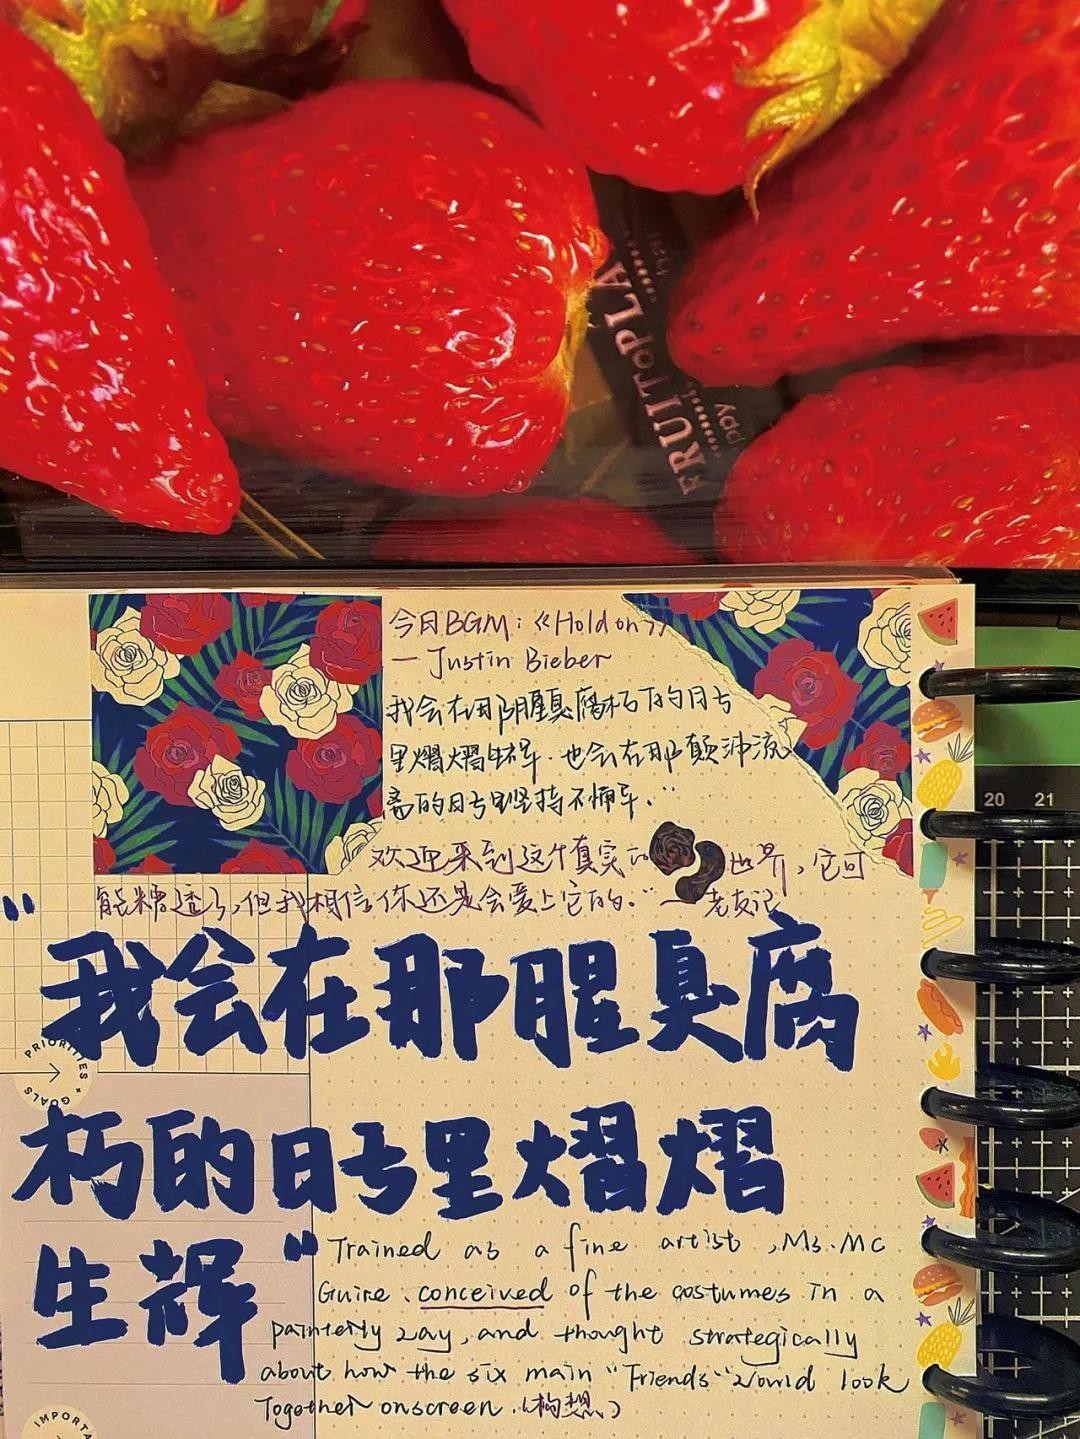 FRUITOPLA
今日BGM:《Hold on》
— Justin Bieber
我会在那腥臭腐朽的日子
里熠熠生辉.也会在那颠沛流
离的日子里坚持不懈.”
欢迎来到这个真实 世界，它可
能糟透了,但我相信你还是会爱上它的.” —老友记
“我会在那腥臭腐
朽的日子里熠熠
生辉”
PRIORITIES + GOALS
Trained as a fine artist, Ms. Mc
Guire conceived of the costumes in a
painterly way, and thought strategically
about how the six main "Friends" would look
Together onscreen. (构想)
IMPORTA
20 21